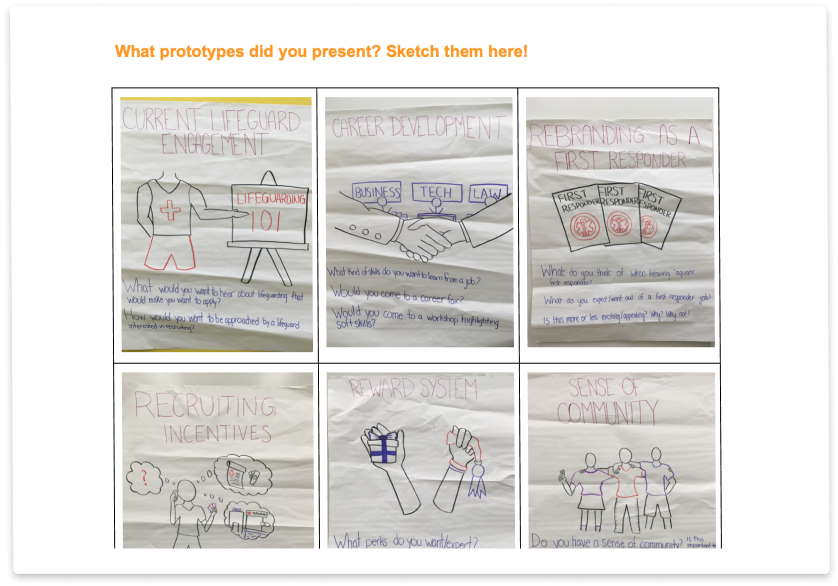 What prototypes did you present? Sketch them here!
CURRENT LIFEGUARD
ENGAGEMENT
LIFEGUARDING
101
What would you want to hear about lifeguarding that
would make you want to apply?
How would you want to be approached by a lifeguard
interested in recruiting?
CAREER DEVELOPMENT
BUSINESS
TECH
LAW
What kind of skills do you want to learn from a job?
Would you come to a career fair?
Would you come to a workshop highlighting
soft skills?
REBRANDING AS A
FIRST RESPONDER
FIRST
RESPONDER
FIRST
RESPONDER
FIRST
RESPONDER
What do you think of when hearing "aquatic
first responder?
What do you expect/want out of a first responder job?
Is this more or less exciting/appealing? Why? Why not?
RECRUITING
INCENTIVES
?
REWARD SYSTEM
What perks do you want/expect?
SENSE OF
COMMUNITY
Do you have a sense of community? Is this
important to